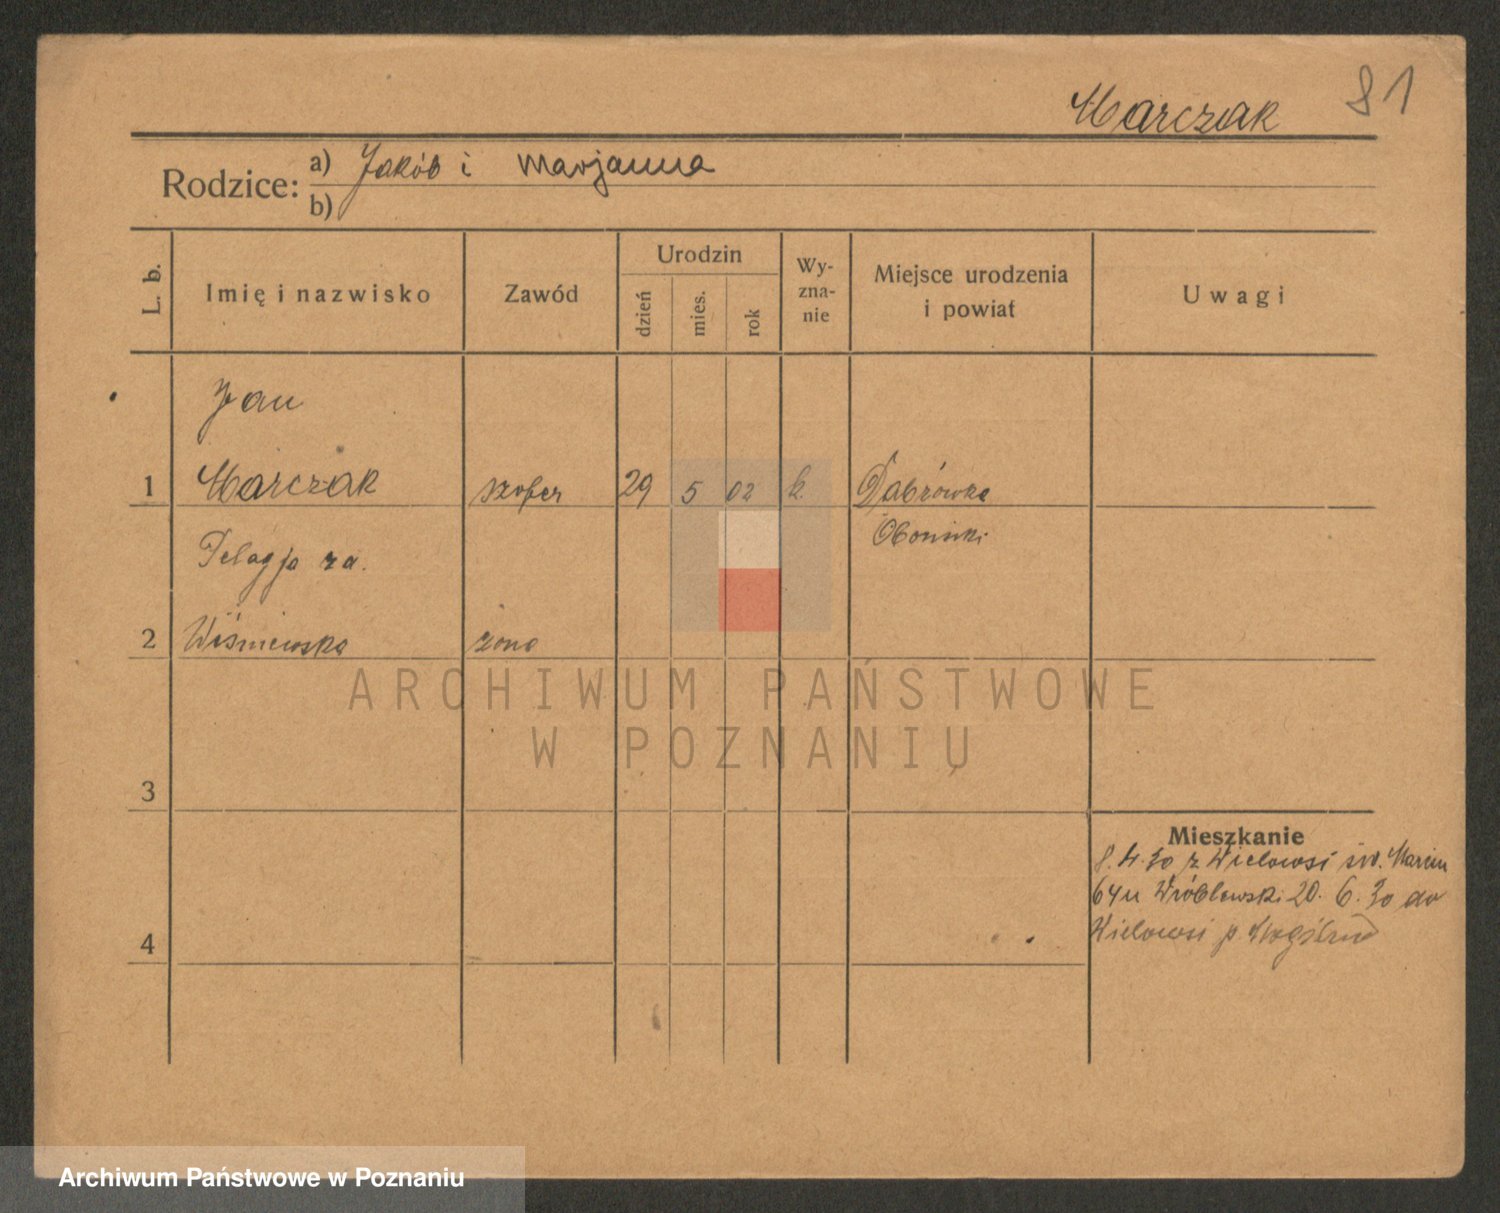 81
Marczak
Rodzice: a) Jakób i Marjanna
b)
L. b.
Imię i nazwisko
Zawód
Urodzin
dzień
mies.
rok
Wy-
zna-
nie
Miejsce urodzenia
i powiat
Uwagi
Jan
1 Marczak szofer 29 5 02 k. Dąbrówka
Obornicki
Pelagja za.
2 Wiśniewska żona
ARCHIWUM PAŃSTWOWE
W POZNANIU
3
Mieszkanie
8. 4. 30 z Wielowsi św. Marcin
64 u Wróblewski 20. 6. 30 do
4
Wielowsi p.
Archiwum Państwowe w Poznaniu